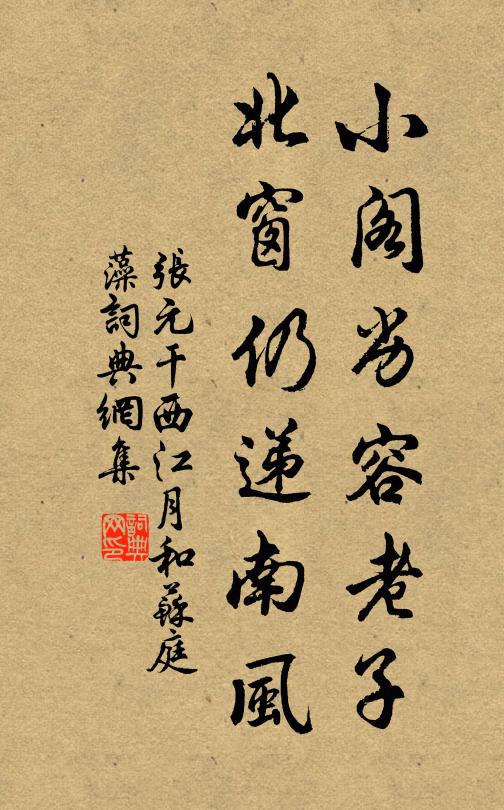 小阁劣容老子
北窗仍递南風
張元干西江月和蘇庭
藻詞典網集
詞典网印